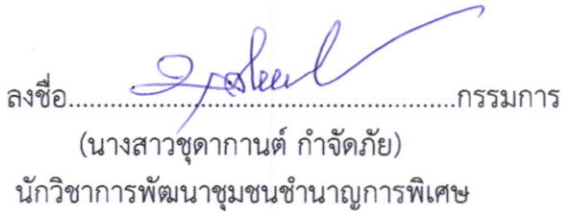 ลงชื่อ.......................................................กรรมการ
(นางสาวชุดากานต์ กำจัดภัย)
นักวิชาการพัฒนาชุมชนชำนาญการพิเศษ